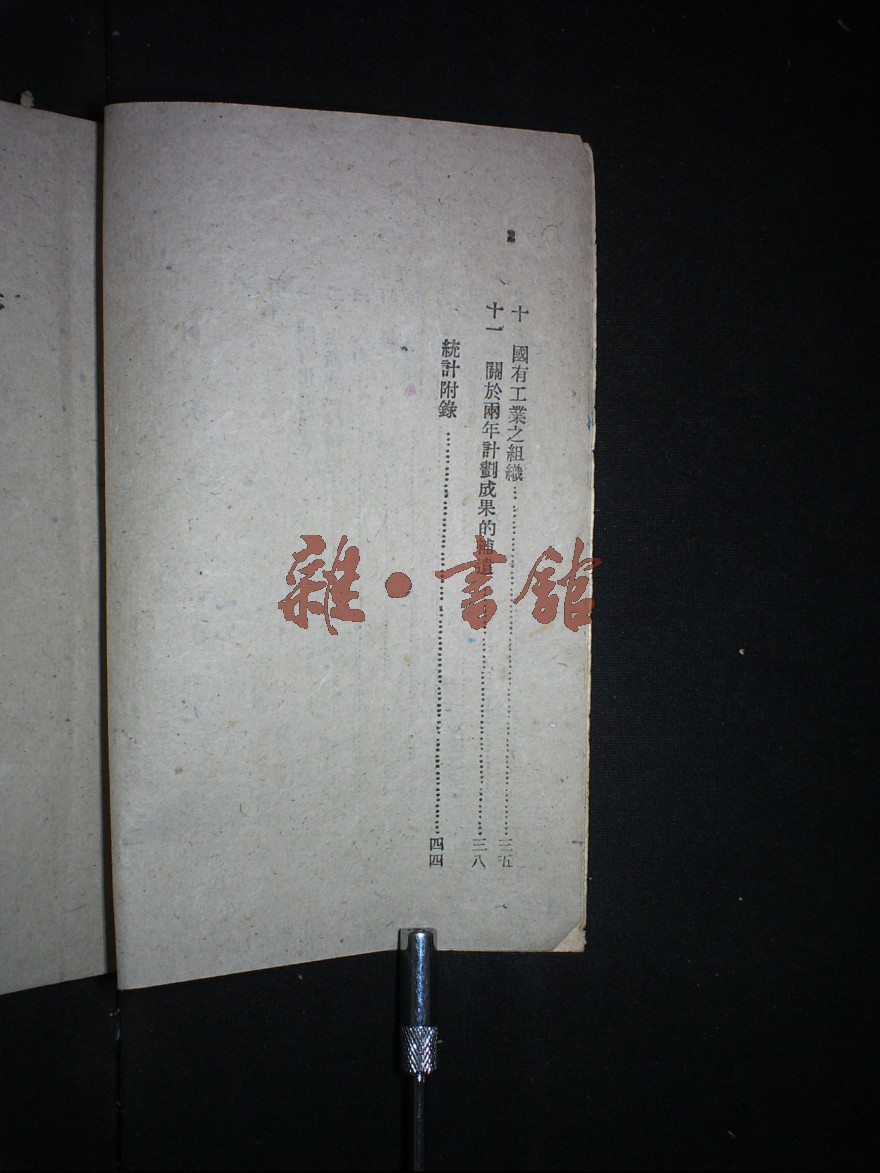 2
十　國有工業之組織……三五
十一　關於兩年計劃成果的補遺……三八
統計附錄……四四
雜·書館